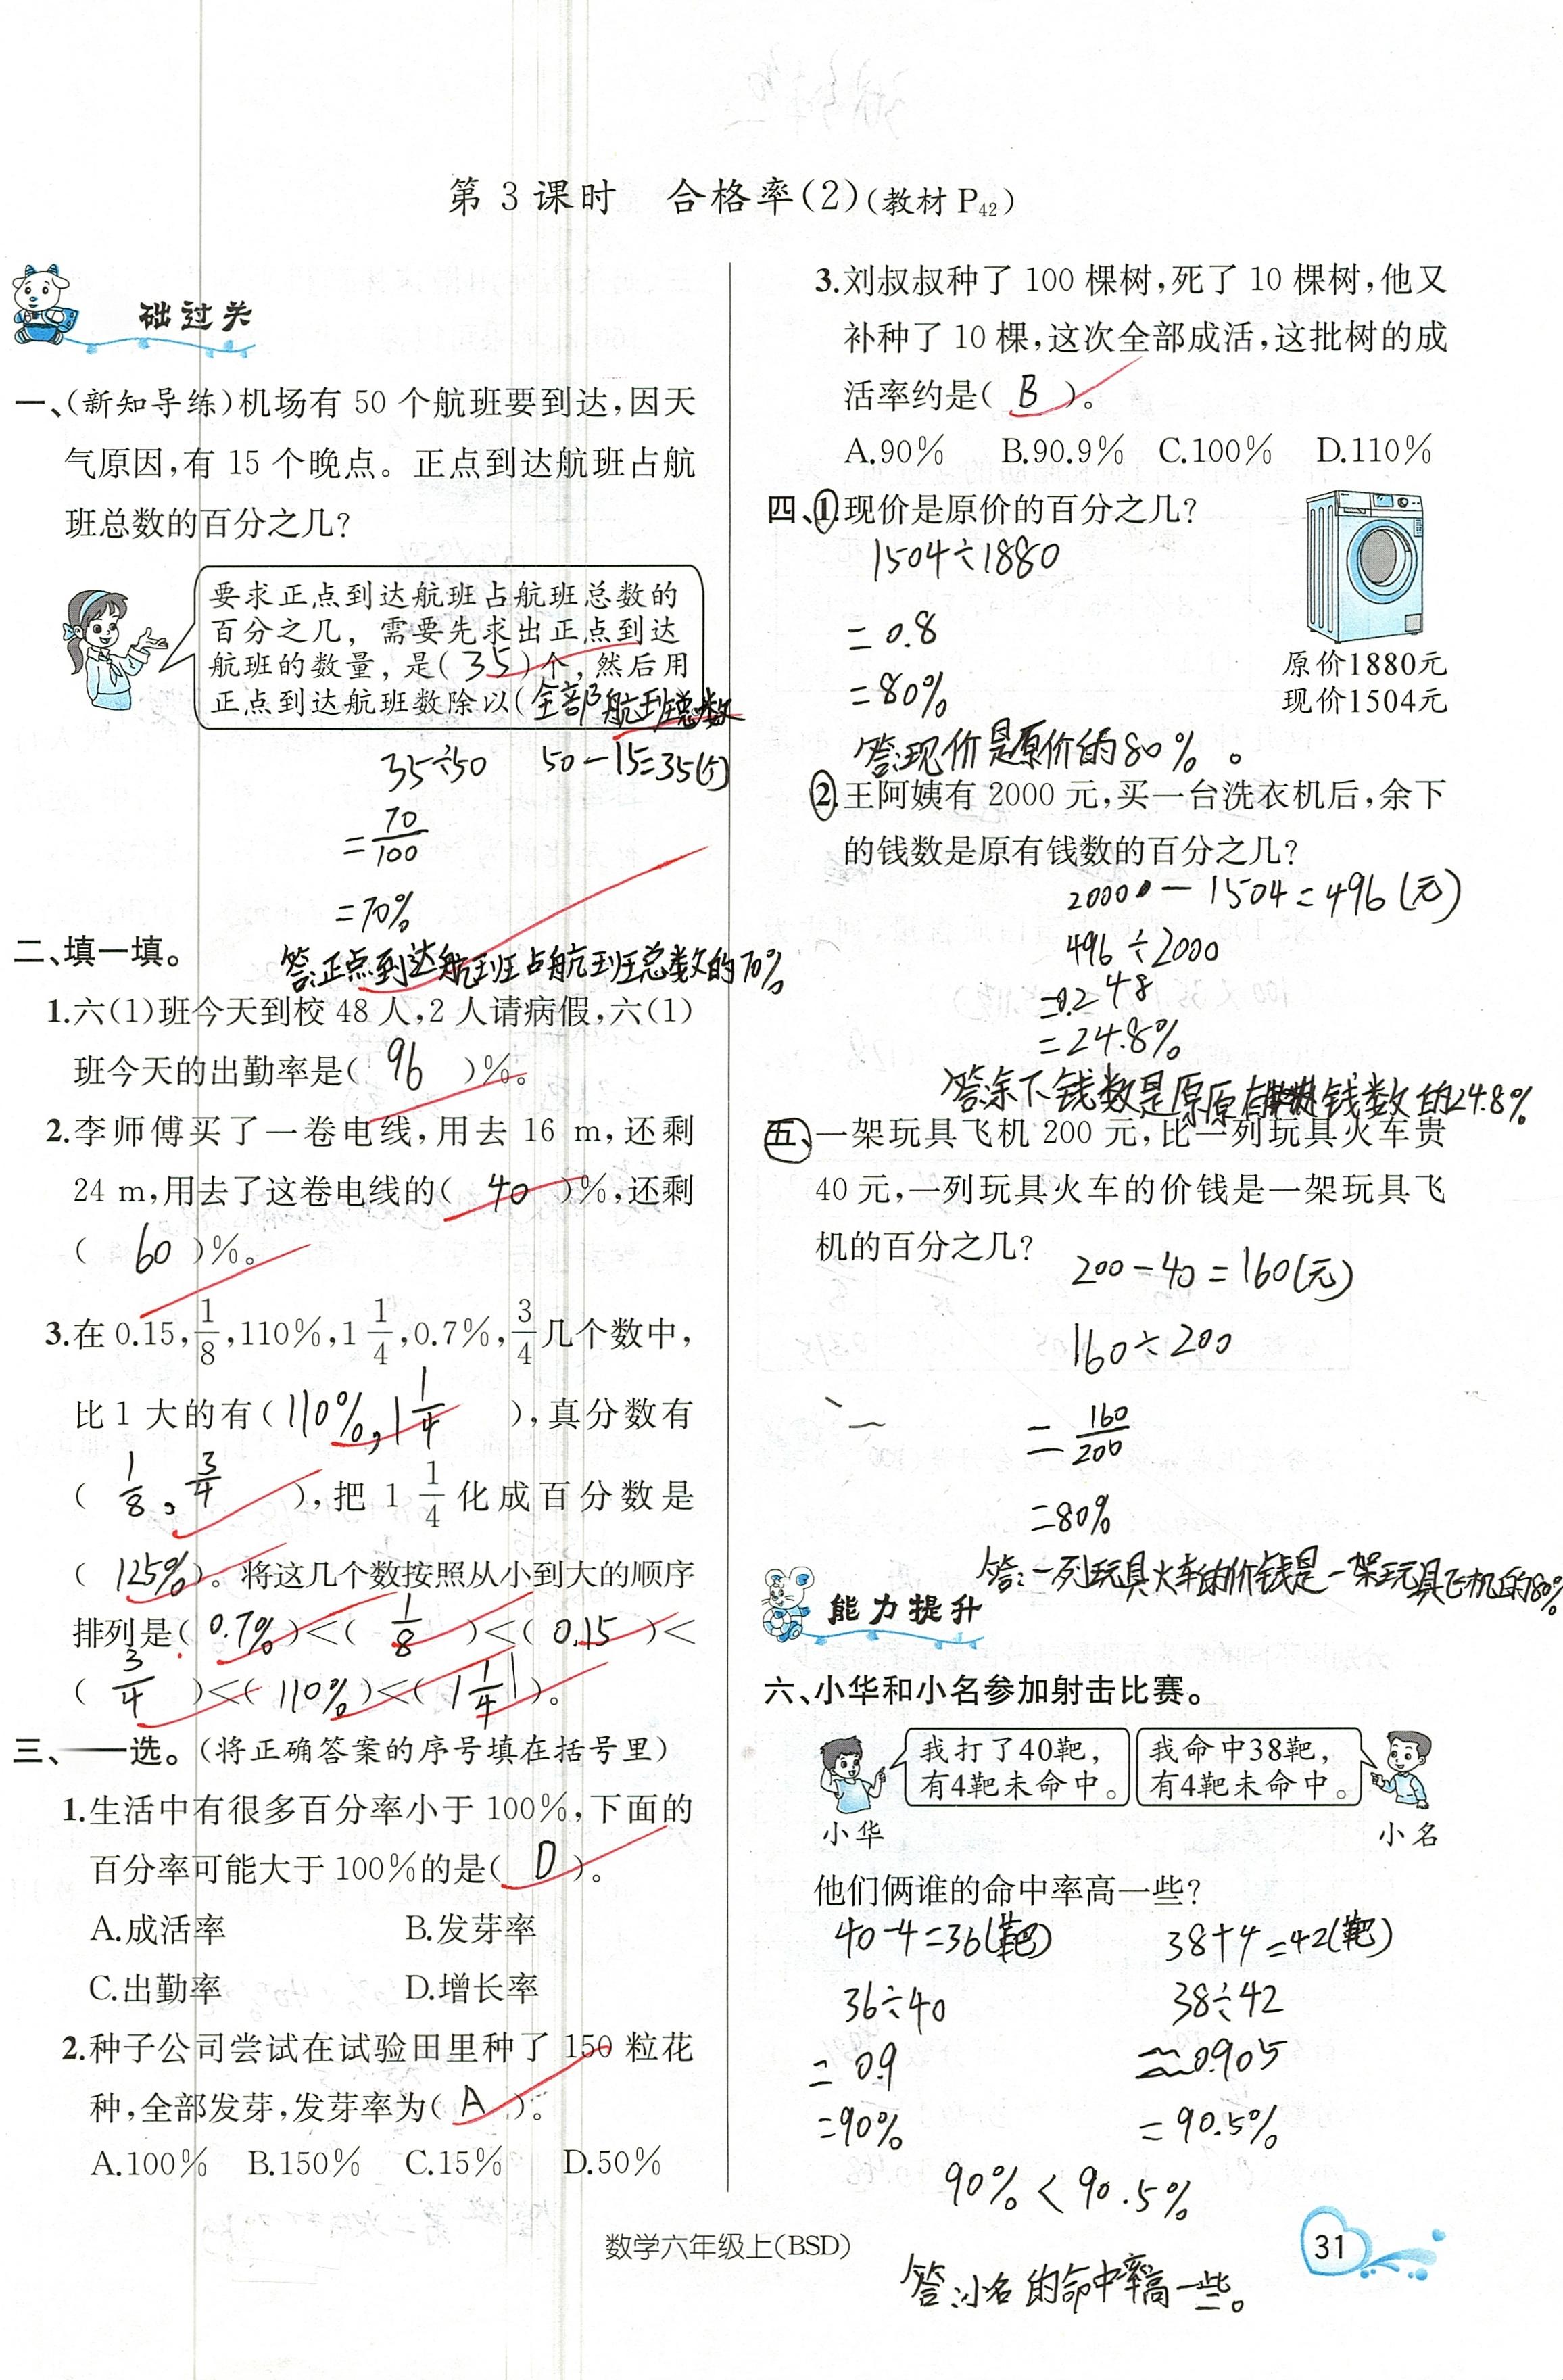 第 3 课时 合格率(2)(教材 P42)
础过关
一、(新知导练)机场有 50 个航班要到达,因天
气原因,有 15 个晚点。正点到达航班占航
班总数的百分之几?
要求正点到达航班占航班总数的
百分之几,需要先求出正点到达
航班的数量,是(35)个,然后用
正点到达航班数除以(全部航班总数
35÷50 50-15=35(个)
=70/100
=70%
答:正点到达航班占航班总数的70%
二、填一填。
1.六(1)班今天到校 48 人,2 人请病假,六(1)
班今天的出勤率是( 96 )%。
2.李师傅买了一卷电线,用去 16 m,还剩
24 m,用去了这卷电线的( 40 )%,还剩
( 60 )%。
3.在 0.15,1/8,110%,1 1/4,0.7%,3/4几个数中,
比 1 大的有(110%,1 1/4 ),真分数有
( 1/8、3/4 ),把 1 1/4 化成百分数是
( 125% )。将这几个数按照从小到大的顺序
排列是( 0.7% )<( 1/8 )<( 0.15 )<
( 3/4 )<( 110% )<( 1 1/4 )。
三、一选。(将正确答案的序号填在括号里)
1.生活中有很多百分率小于 100%,下面的
百分率可能大于 100%的是( D )。
A.成活率 B.发芽率
C.出勤率 D.增长率
2.种子公司尝试在试验田里种了 150 粒花
种,全部发芽,发芽率为( A )。
A.100% B.150% C.15% D.50%
3.刘叔叔种了 100 棵树,死了 10 棵树,他又
补种了 10 棵,这次全部成活,这批树的成
活率约是( B )。
A.90% B.90.9% C.100% D.110%
四、1.现价是原价的百分之几?
1504÷1880
=0.8
=80%
答:现价是原价的80%。
原价1880元
现价1504元
2.王阿姨有 2000 元,买一台洗衣机后,余下
的钱数是原有钱数的百分之几?
2000-1504=496(元)
496÷2000
=0.248
=24.8%
答:余下钱数是原原有钱数的24.8%
五、一架玩具飞机 200 元,比一列玩具火车贵
40 元,一列玩具火车的价钱是一架玩具飞
机的百分之几?
200-40=160(元)
160÷200
=160/200
=80%
答:一列玩具火车的价钱是一架玩具飞机的80%
能力提升
六、小华和小名参加射击比赛。
我打了40靶,
有4靶未命中。
我命中38靶,
有4靶未命中。
小华 小名
他们俩谁的命中率高一些?
40-4=36(靶) 38+4=42(靶)
36÷40 38÷42
=0.9 ≈0.905
=90% =90.5%
90%<90.5%
答:小名的命中率高一些。
数学六年级上(BSD)
31